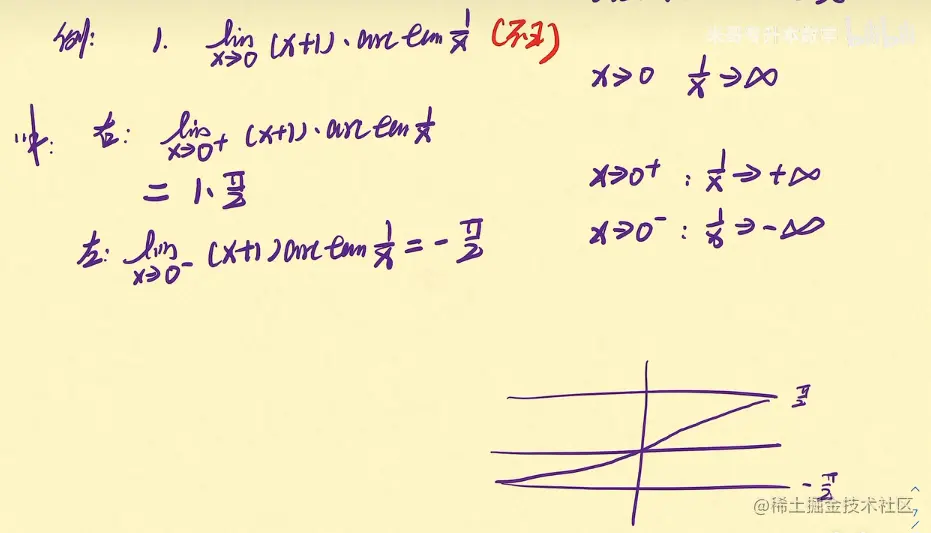 例: 1. lim x→0 (x+1)·arctan 1/x (不∃)
x→0 1/x→∞
解: 右: lim x→0⁺ (x+1)·arctan 1/x
= 1·π/2
x→0⁺: 1/x→+∞
左: lim x→0⁻ (x+1)arctan 1/x = -π/2
x→0⁻: 1/x→-∞
π/2
-π/2
@稀土掘金技术社区